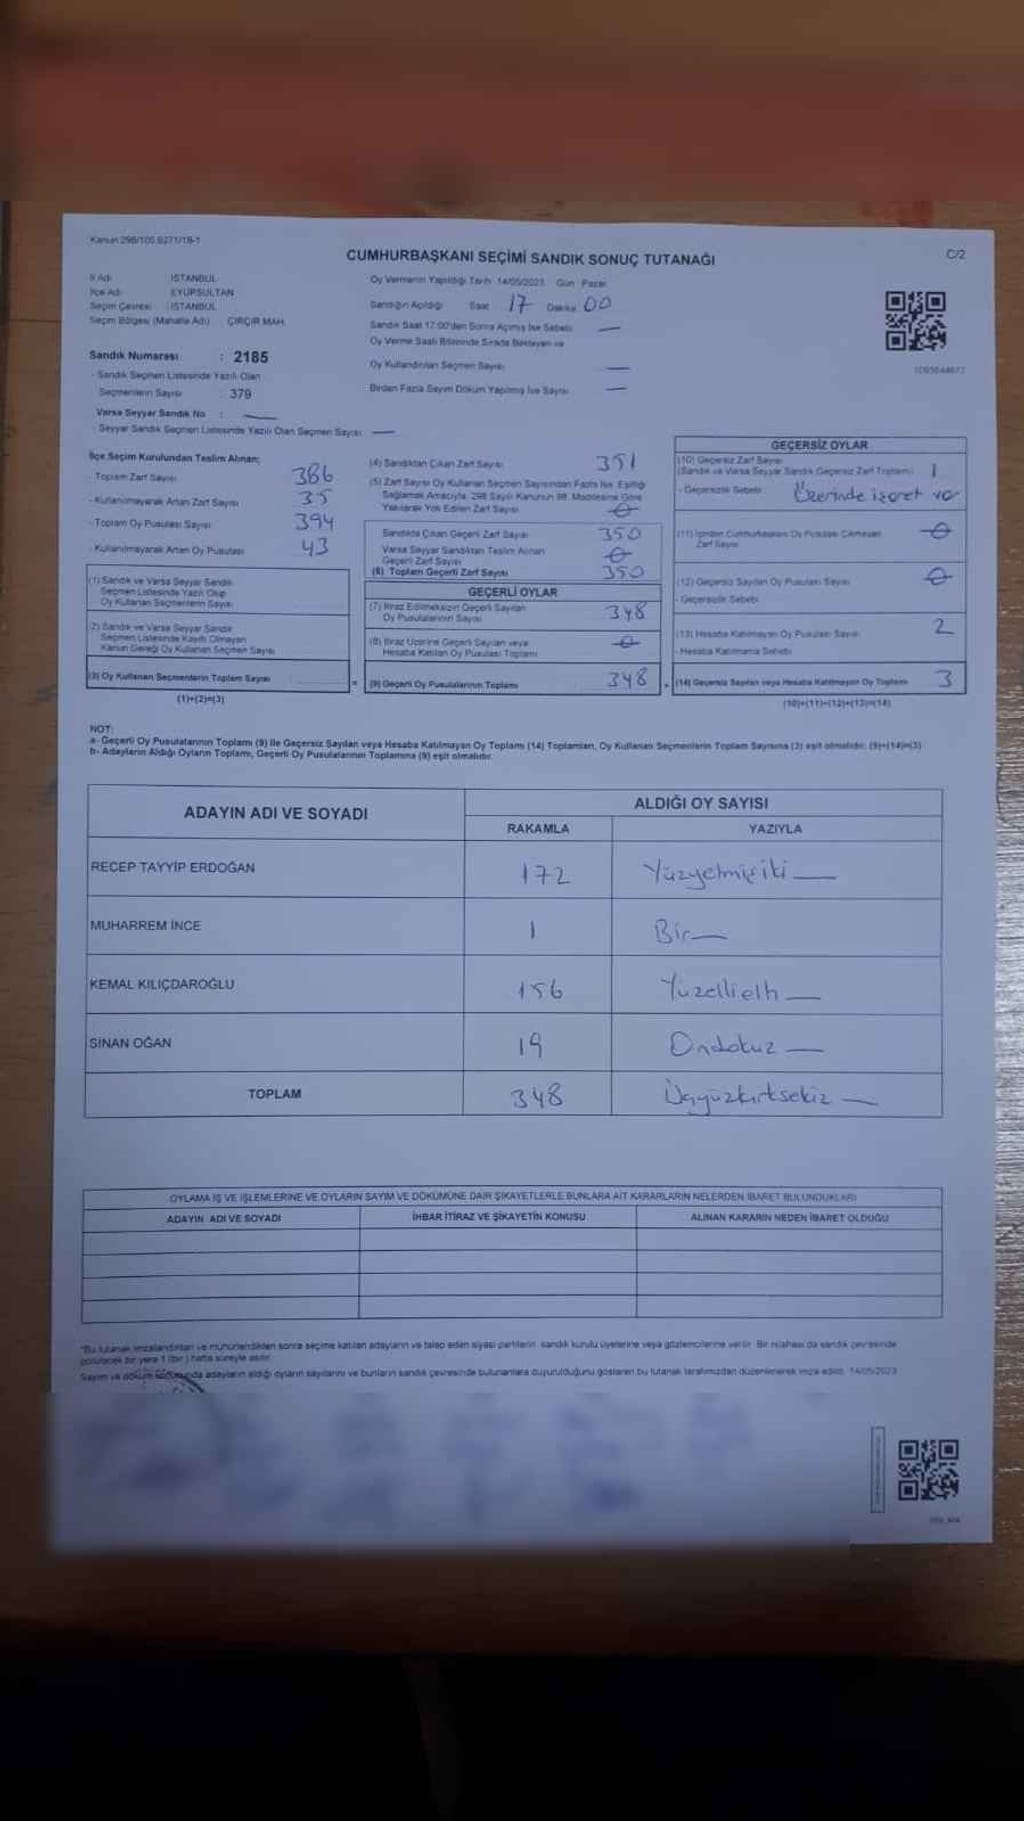 Kanun 298/105,6271/18-1
CUMHURBAŞKANI SEÇİMİ SANDIK SONUÇ TUTANAĞI
C/2
İl Adı : İSTANBUL
İlçe Adı : EYÜPSULTAN
Seçim Çevresi : İSTANBUL
Seçim Bölgesi (Mahalle Adı) : ÇIRÇIR MAH.
Sandık Numarası : 2185
- Sandık Seçmen Listesinde Yazılı Olan
Seçmenlerin Sayısı : 379
Varsa Seyyar Sandık No : —
- Seyyar Sandık Seçmen Listesinde Yazılı Olan Seçmen Sayısı —
Oy Vermenin Yapıldığı Tarih 14/05/2023 Gün Pazar
Sandığın Açıldığı Saat 17 Dakika 00
Sandık Saat 17:00'den Sonra Açılmış İse Sebebi —
Oy Verme Saati Bitiminde Sırada Bekleyen ve
Oy Kullandırılan Seçmen Sayısı —
Birden Fazla Sayım Döküm Yapılmış İse Sayısı —
İlçe Seçim Kurulundan Teslim Alınan;
- Toplam Zarf Sayısı 386
- Kullanılmayarak Artan Zarf Sayısı 35
- Toplam Oy Pusulası Sayısı 394
- Kullanılmayarak Artan Oy Pusulası 43
(1) Sandık ve Varsa Seyyar Sandık
Seçmen Listesinde Yazılı Olup
Oy Kullanan Seçmenlerin Sayısı
(2) Sandık ve Varsa Seyyar Sandık
Seçmen Listesinde Kayıtlı Olmayan
Kanun Gereği Oy Kullanan Seçmen Sayısı
(3) Oy Kullanan Seçmenlerin Toplam Sayısı
(1)+(2)=(3)
(4) Sandıktan Çıkan Zarf Sayısı 351
(5) Zarf Sayısı Oy Kullanan Seçmen Sayısından Fazla İse, Eşitliği
Sağlamak Amacıyla, 298 Sayılı Kanunun 98. Maddesine Göre
Yakılarak Yok Edilen Zarf Sayısı 0
Sandıkta Çıkan Geçerli Zarf Sayısı 350
Varsa Seyyar Sandıktan Teslim Alınan
Geçerli Zarf Sayısı 0
(6) Toplam Geçerli Zarf Sayısı 350
GEÇERLİ OYLAR
(7) İtiraz Edilmeksizin Geçerli Sayılan
Oy Pusulalarının Sayısı 348
(8) İtiraz Üzerine Geçerli Sayılan veya
Hesaba Katılan Oy Pusulası Toplamı 0
= (9) Geçerli Oy Pusulalarının Toplamı 348
GEÇERSİZ OYLAR
(10) Geçersiz Zarf Sayısı
(Sandık ve Varsa Seyyar Sandık Geçersiz Zarf Toplamı) 1
- Geçersizlik Sebebi Üzerinde işaret var
(11) İçinden Cumhurbaşkanı Oy Pusulası Çıkmayan
Zarf Sayısı 0
(12) Geçersiz Sayılan Oy Pusulası Sayısı 0
- Geçersizlik Sebebi
(13) Hesaba Katılmayan Oy Pusulası Sayısı 2
- Hesaba Katılmama Sebebi
+ (14) Geçersiz Sayılan veya Hesaba Katılmayan Oy Toplamı 3
(10)+(11)+(12)+(13)=(14)
NOT:
a- Geçerli Oy Pusulalarının Toplamı (9) İle Geçersiz Sayılan veya Hesaba Katılmayan Oy Toplamı (14) Toplamları, Oy Kullanan Seçmenlerin Toplam Sayısına (3) eşit olmalıdır. (9)+(14)=(3)
b- Adayların Aldığı Oyların Toplamı, Geçerli Oy Pusulalarının Toplamına (9) eşit olmalıdır.
ADAYIN ADI VE SOYADI
ALDIĞI OY SAYISI
RAKAMLA YAZIYLA
RECEP TAYYİP ERDOĞAN 172 Yüzyetmişiki —
MUHARREM İNCE 1 Bir —
KEMAL KILIÇDAROĞLU 156 Yüzellialtı —
SİNAN OĞAN 19 Ondokuz —
TOPLAM 348 Üçyüzkırksekiz —
OYLAMA İŞ VE İŞLEMLERİNE VE OYLARIN SAYIM VE DÖKÜMÜNE DAİR ŞİKAYETLERLE BUNLARA AİT KARARLARIN NELERDEN İBARET BULUNDUKLARI
ADAYIN ADI VE SOYADI İHBAR İTİRAZ VE ŞİKAYETİN KONUSU ALINAN KARARIN NEDEN İBARET OLDUĞU
"Bu tutanak imzalandıktan ve mühürlendikten sonra seçime katılan adayların ve talep eden siyasi partilerin, sandık kurulu üyelerine veya gözlemcilerine verilir. Bir nüshası da sandık çevresinde
görülecek bir yere 1 (bir) hafta süreyle asılır.
Sayım ve döküm sonucunda adayların aldığı oyların sayılarını ve bunların sandık çevresinde bulunanlara duyurulduğunu gösteren bu tutanak tarafımızdan düzenlenerek imza edildi. 14/05/2023